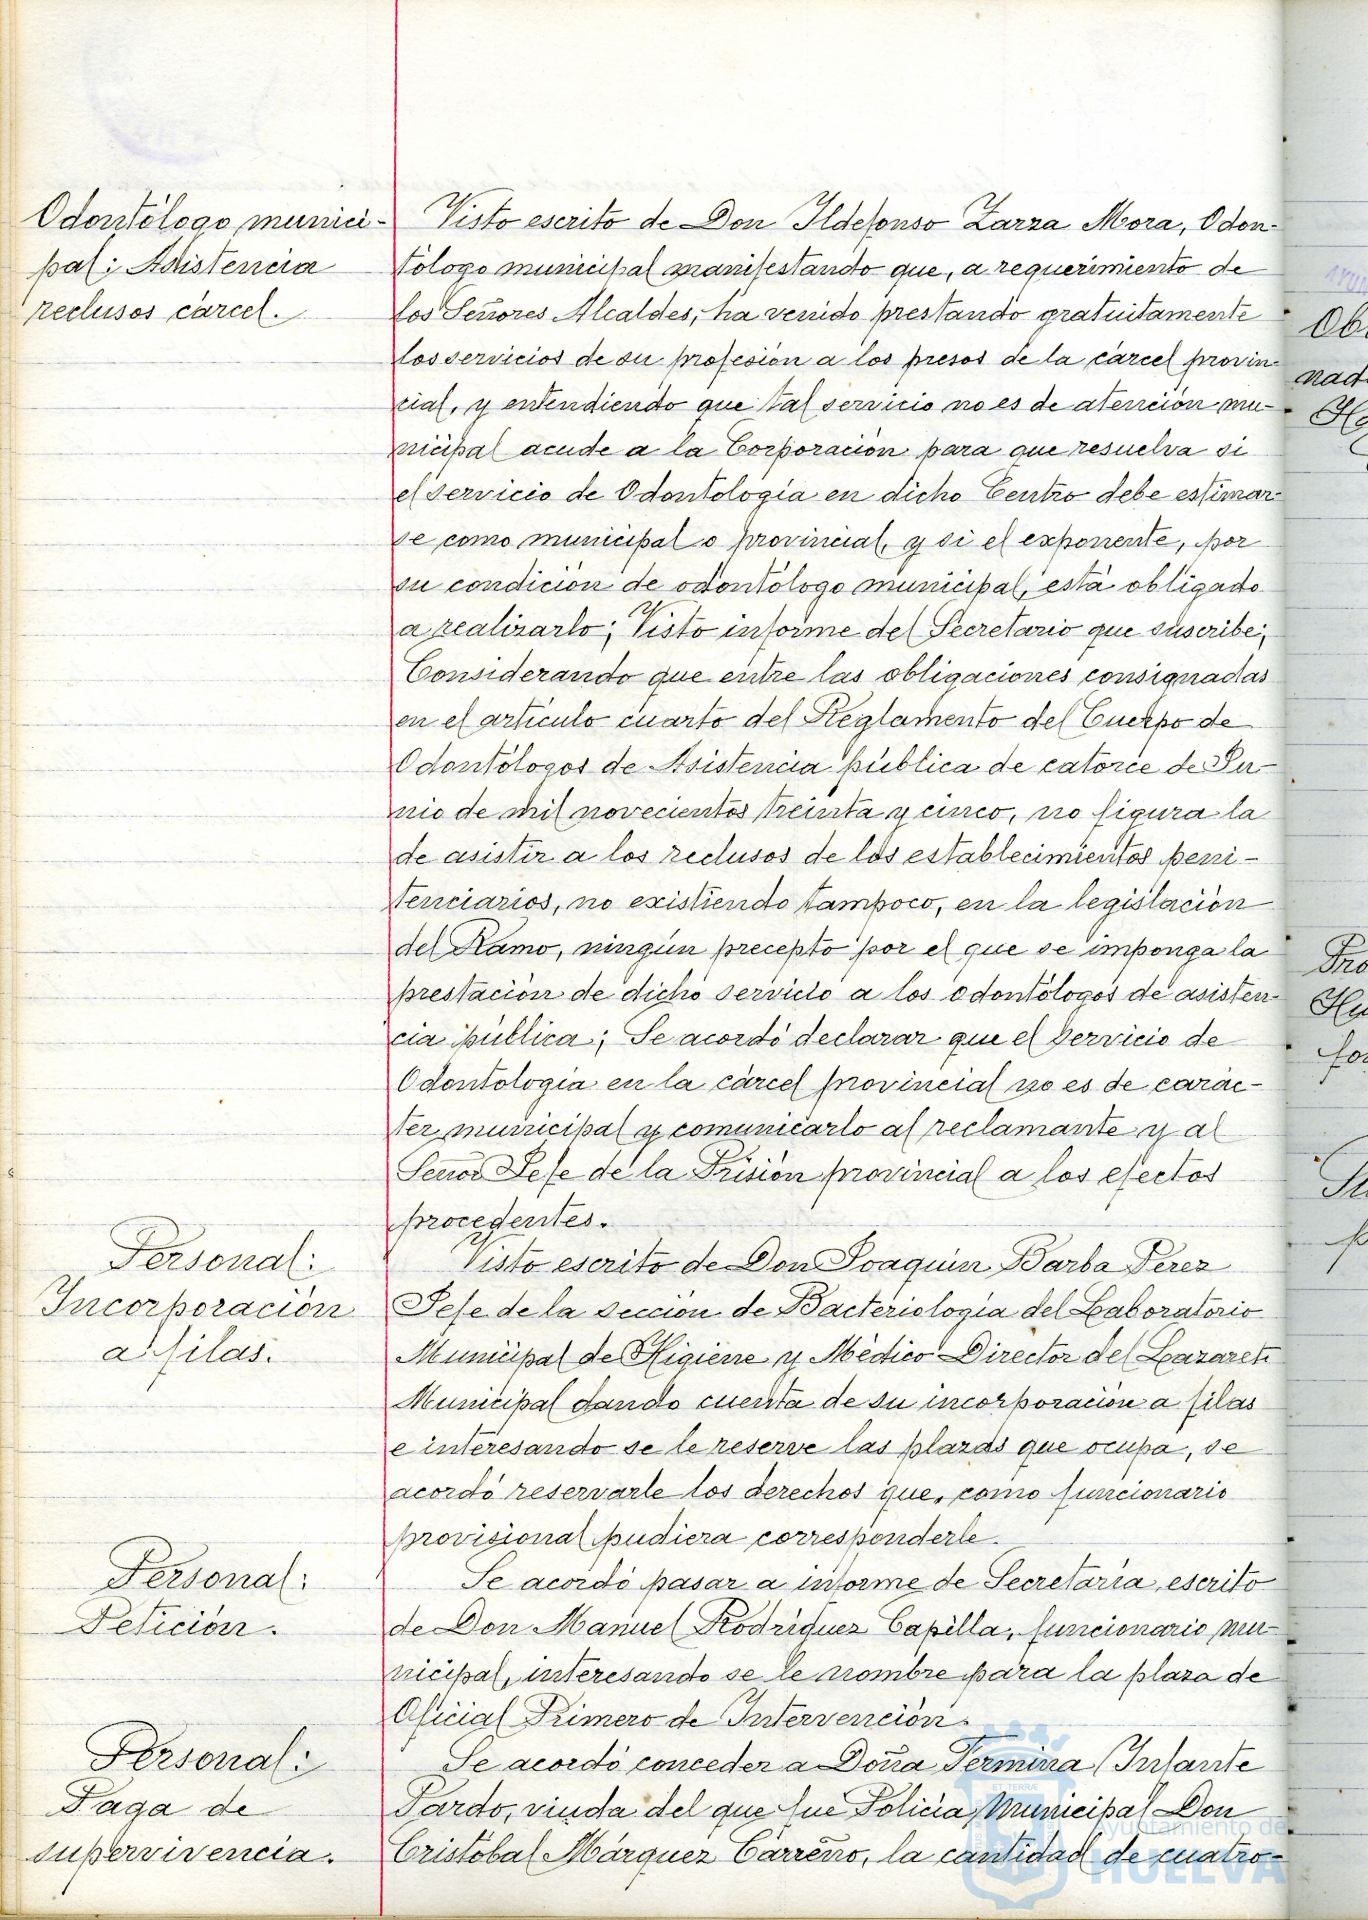 Odontólogo munici-
pal: Asistencia
reclusos cárcel.
Visto escrito de Don Ildefonso Zarza Mora, Odon-
tólogo municipal manifestando que, a requerimiento de
los Señores Alcaldes, ha venido prestando gratuitamente
los servicios de su profesión a los presos de la cárcel provin-
cial, y entendiendo que tal servicio no es de atención mu-
nicipal acude a la Corporación para que resuelva si
el servicio de Odontología en dicho Centro debe estimar-
se como municipal o provincial, y si el exponente, por
su condición de odontólogo municipal, está obligado
a realizarlo; Visto informe del Secretario que suscribe;
Considerando que entre las obligaciones consignadas
en el artículo cuarto del Reglamento del Cuerpo de
Odontólogos de Asistencia pública de catorce de Ju-
nio de mil novecientos treinta y cinco, no figura la
de asistir a los reclusos de los establecimientos peni-
tenciarios, no existiendo tampoco, en la legislación
del Ramo, ningún precepto por el que se imponga la
prestación de dicho servicio a los odontólogos de asisten-
cia pública; Se acordó declarar que el Servicio de
Odontología en la cárcel provincial no es de carác-
ter municipal y comunicarlo al reclamante y al
Señor Jefe de la Prisión provincial a los efectos
procedentes.
Personal:
Incorporación
a filas.
Visto escrito de Don Joaquín Barba Pérez
Jefe de la sección de Bacteriología del Laboratorio
Municipal de Higiene y Médico Director del Lazareto
Municipal dando cuenta de su incorporación a filas
e interesando se le reserve las plazas que ocupa, se
acordó reservarle los derechos que, como funcionario
provisional pudiera corresponderle.
Personal:
Petición.
Se acordó pasar a informe de Secretaría, escrito
de Don Manuel Rodríguez Capilla, funcionario mu-
nicipal, interesando se le nombre para la plaza de
Oficial Primero de Intervención.
Personal:
Paga de
supervivencia.
Se acordó conceder a Doña Termina Infante
Pardo, viuda del que fue Policía Municipal Don
Cristóbal Márquez Carreño, la cantidad de cuatro-
Ayuntamiento de
HUELVA